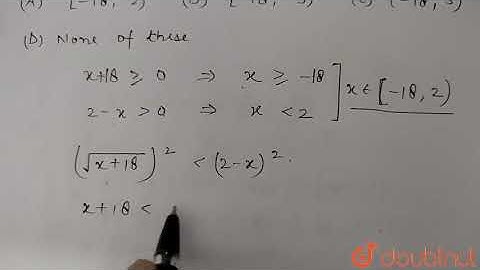 (D) None of these
x+18 ≥ 0 ⇒ x ≥ -18
2-x > 0 ⇒ x < 2 ] x ∈ [-18, 2)
(√x+18)² < (2-x)².
x+18 <
doubtnut